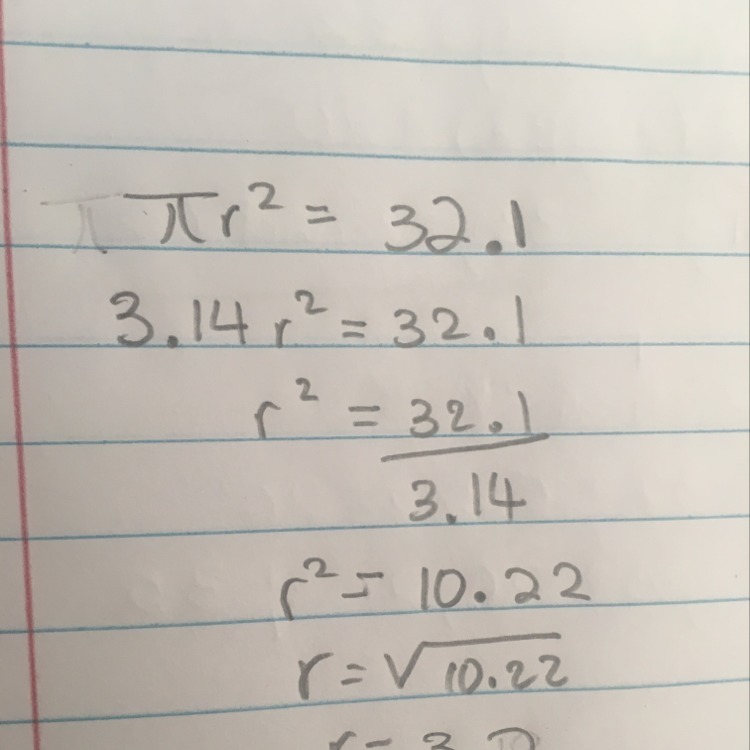 πr² = 32.1
3.14 r² = 32.1
r² = 32.1
3.14
r² = 10.22
r = √10.22